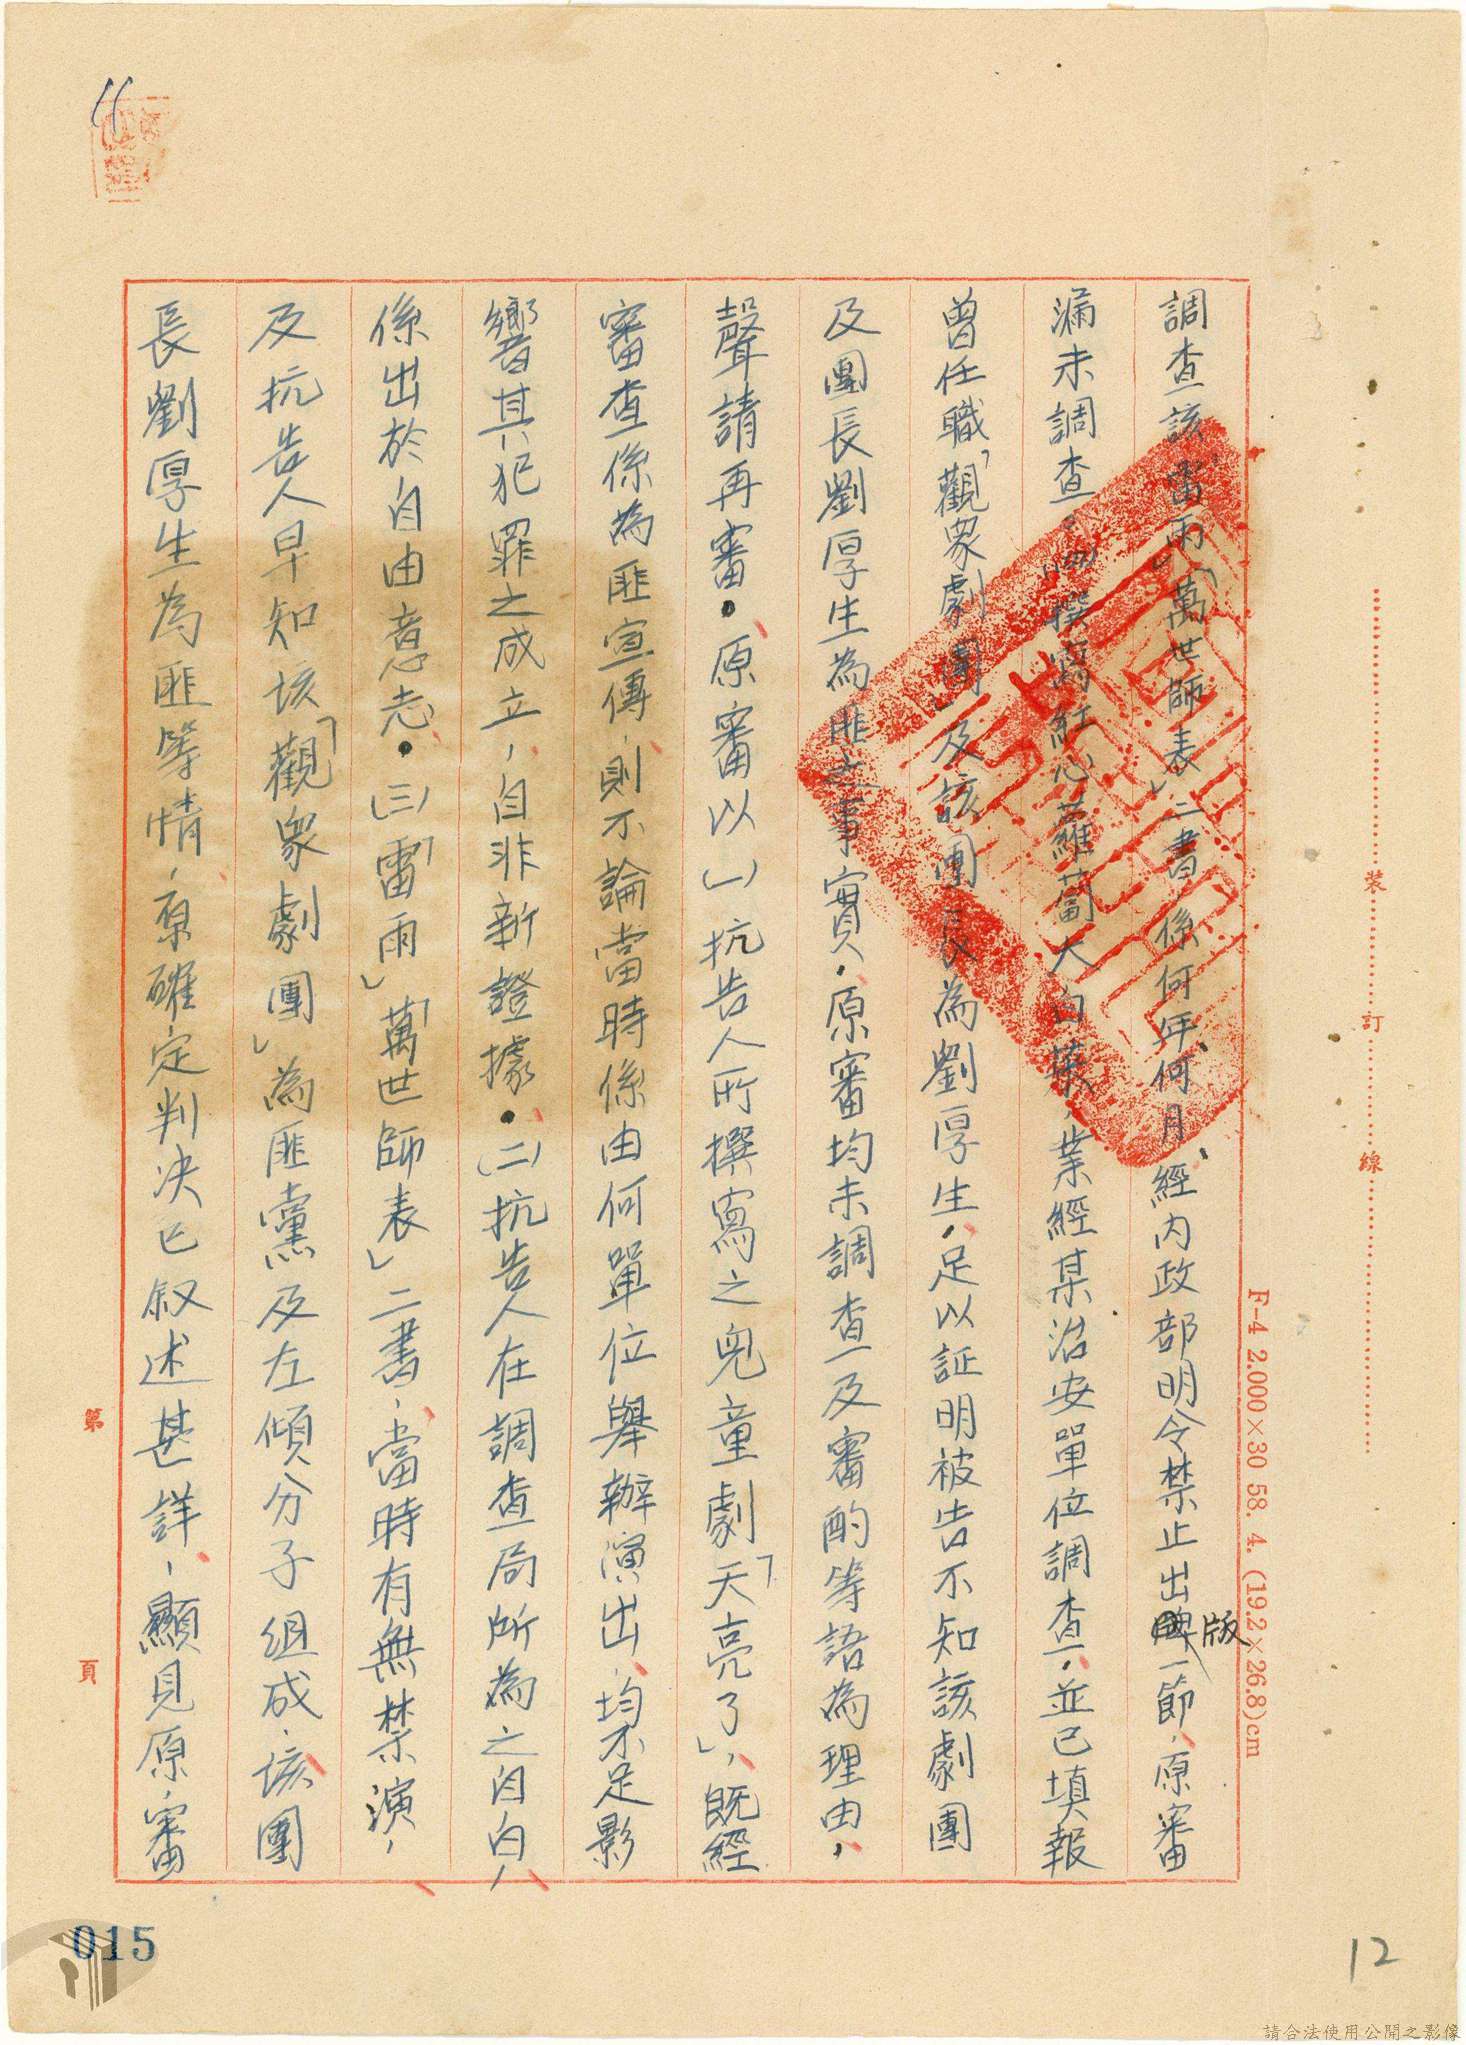 調查該「雷雨」「萬世師表」二書係何年何月、經內政部明令禁止出版一節，原審
漏未調查。(四)撰寫紅心蘿蔔大白菜，業經某治安單位調查，並已填報
曾任職「觀眾劇團」及該團長為劉厚生，足以証明被告不知該劇團
及團長劉厚生為匪之事實。原審均未調查及審酌等語為理由，
聲請再審。原審以(一)抗告人所撰寫之兒童劇「天亮了」，既經
審查係為匪宣傳，則不論當時係由何單位舉辦演出，均不足影
響其犯罪之成立，自非新證據。(二)抗告人在調查局所為之自白，
係出於自由意志。(三)「雷雨」「萬世師表」二書，當時有無禁演，
及抗告人早知該「觀眾劇團」為匪黨及左傾分子組成，該團
長劉厚生為匪等情，原確定判決已敘述甚詳，顯見原審
裝訂線
F-4 2.000×30 58. 4. (19.2×26.8)cm
第 頁
015
12
請合法使用公開之影像